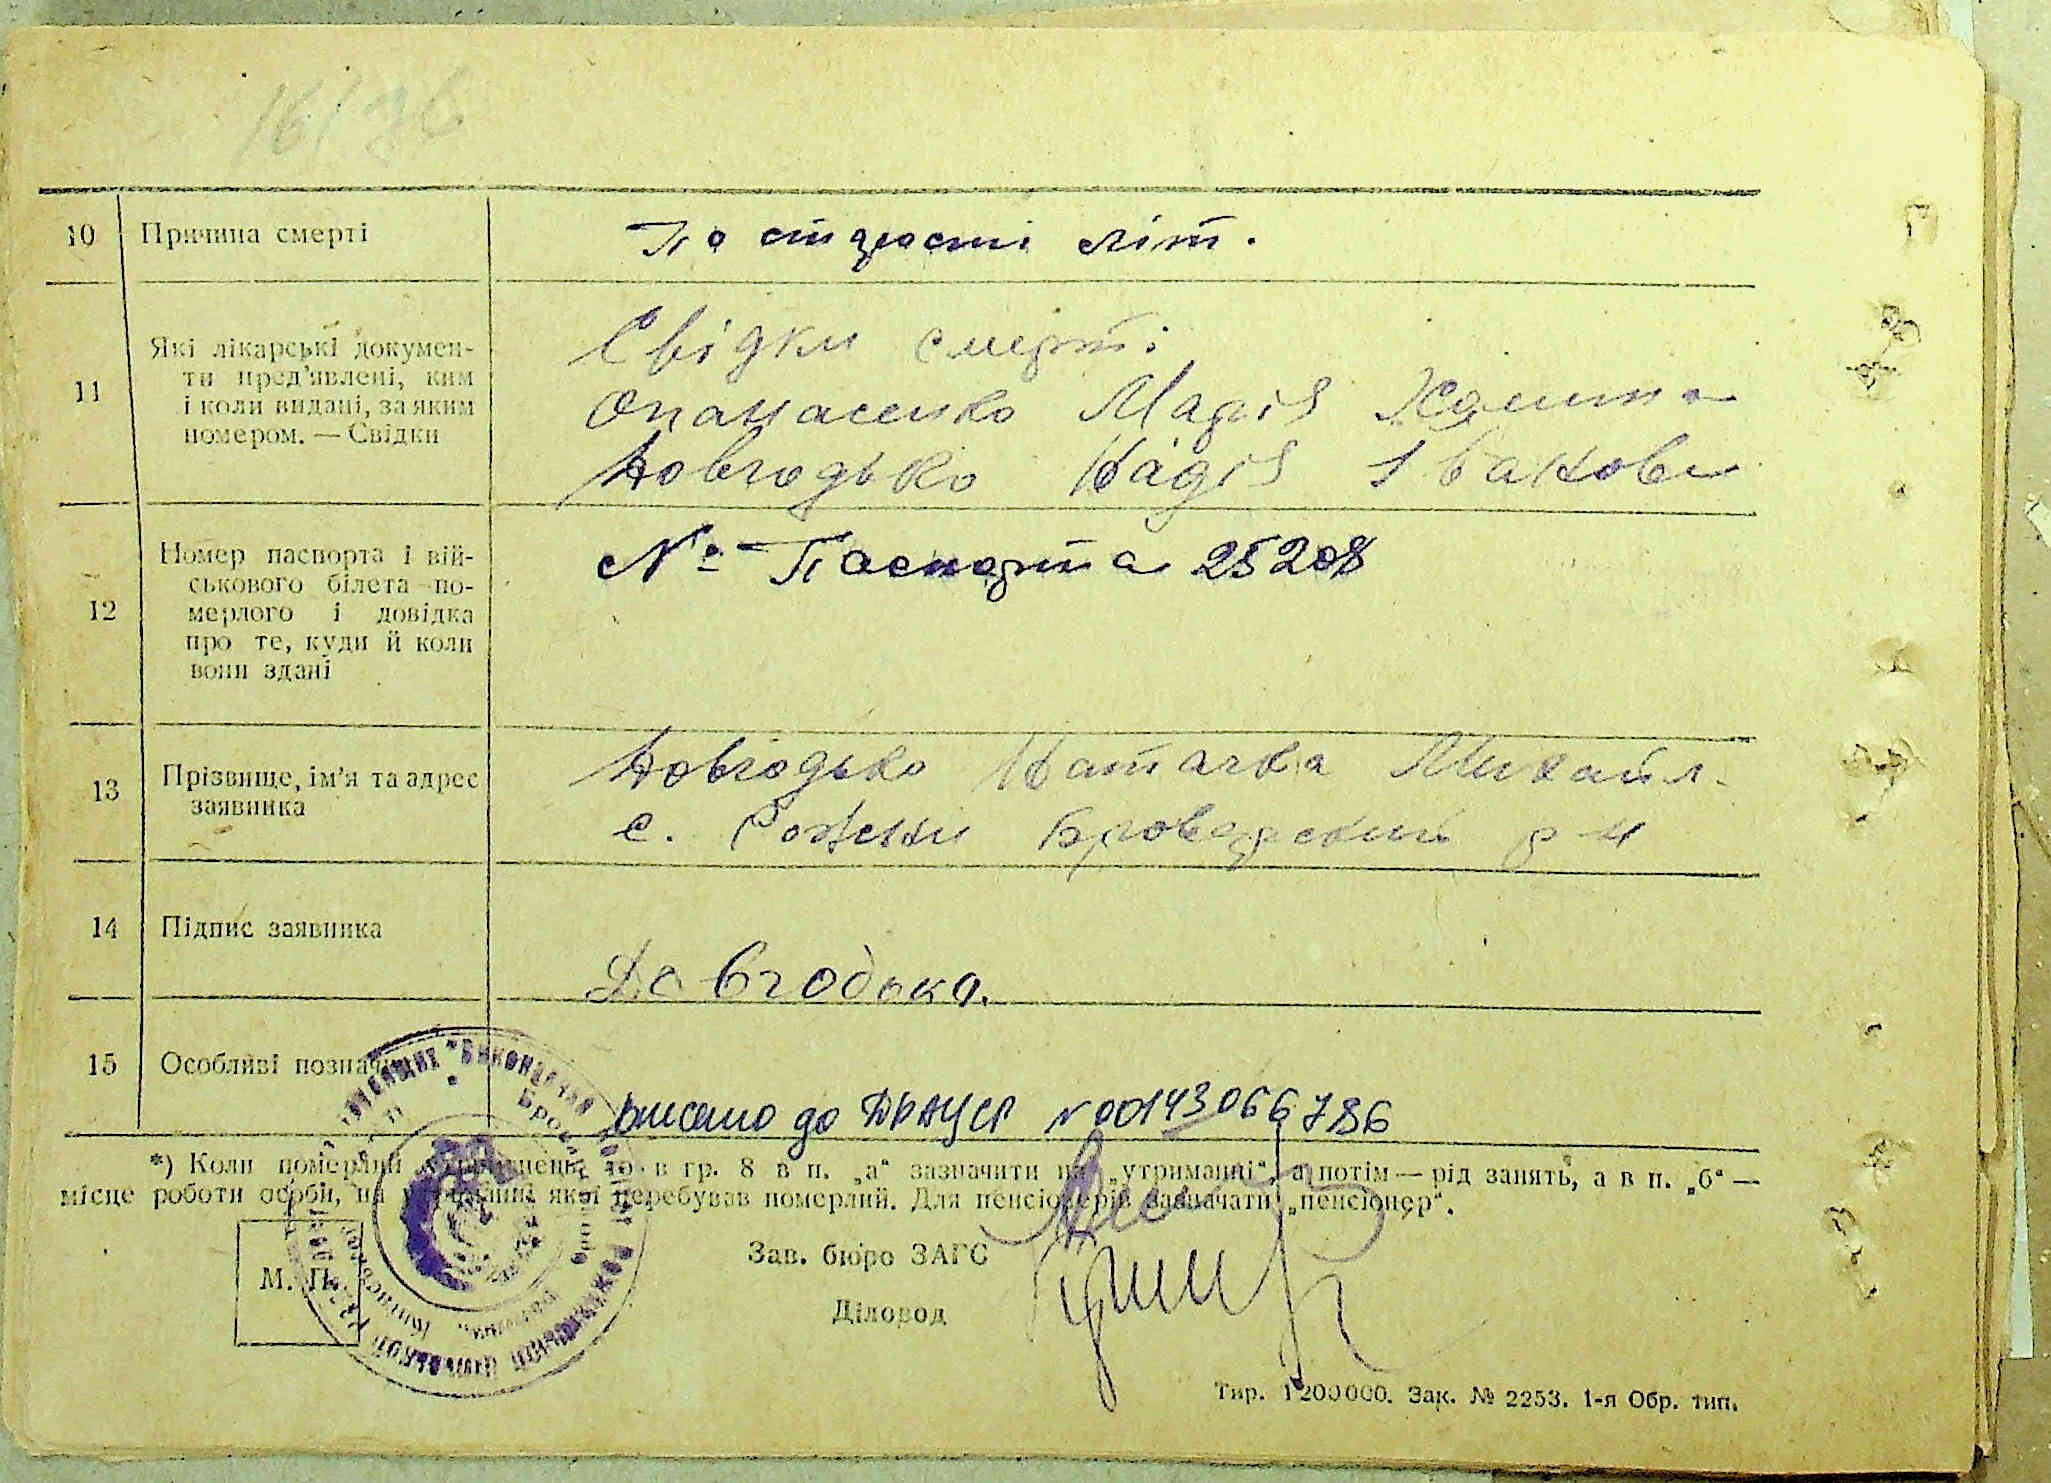 16/76
10 Причина смерті По старості літ.
11 Які лікарські докумен-
ти пред'явлені, ким
і коли видані, за яким
номером. — Свідки
Свідки смерті:
Опанасенко Марія
Довгодько Надія Іванови
12 Номер паспорта і вій-
ськового білета по-
мерлого і довідка
про те, куди й коли
вони здані
№ Паспорта 25208
13 Прізвище, ім'я та адрес
заявника
Довгодько Наталка Михайл.
с. Рожни Броварский р-н
14 Підпис заявника
Довгодько.
15 Особливі позначки
внесено до ДРАЦСГ N00143066786
*) Коли померлий утриманець, то в гр. 8 в п. „а“ зазначити на „утриманні“, а потім — рід занять, а в п. „б“ —
місце роботи особи, на утриманні якої перебував померлий. Для пенсіонерів зазначати „пенсіонер“.
Зав. бюро ЗАГС
Діловод
М. П.
Тир. 1200000. Зак. № 2253. 1-я Обр. тип.